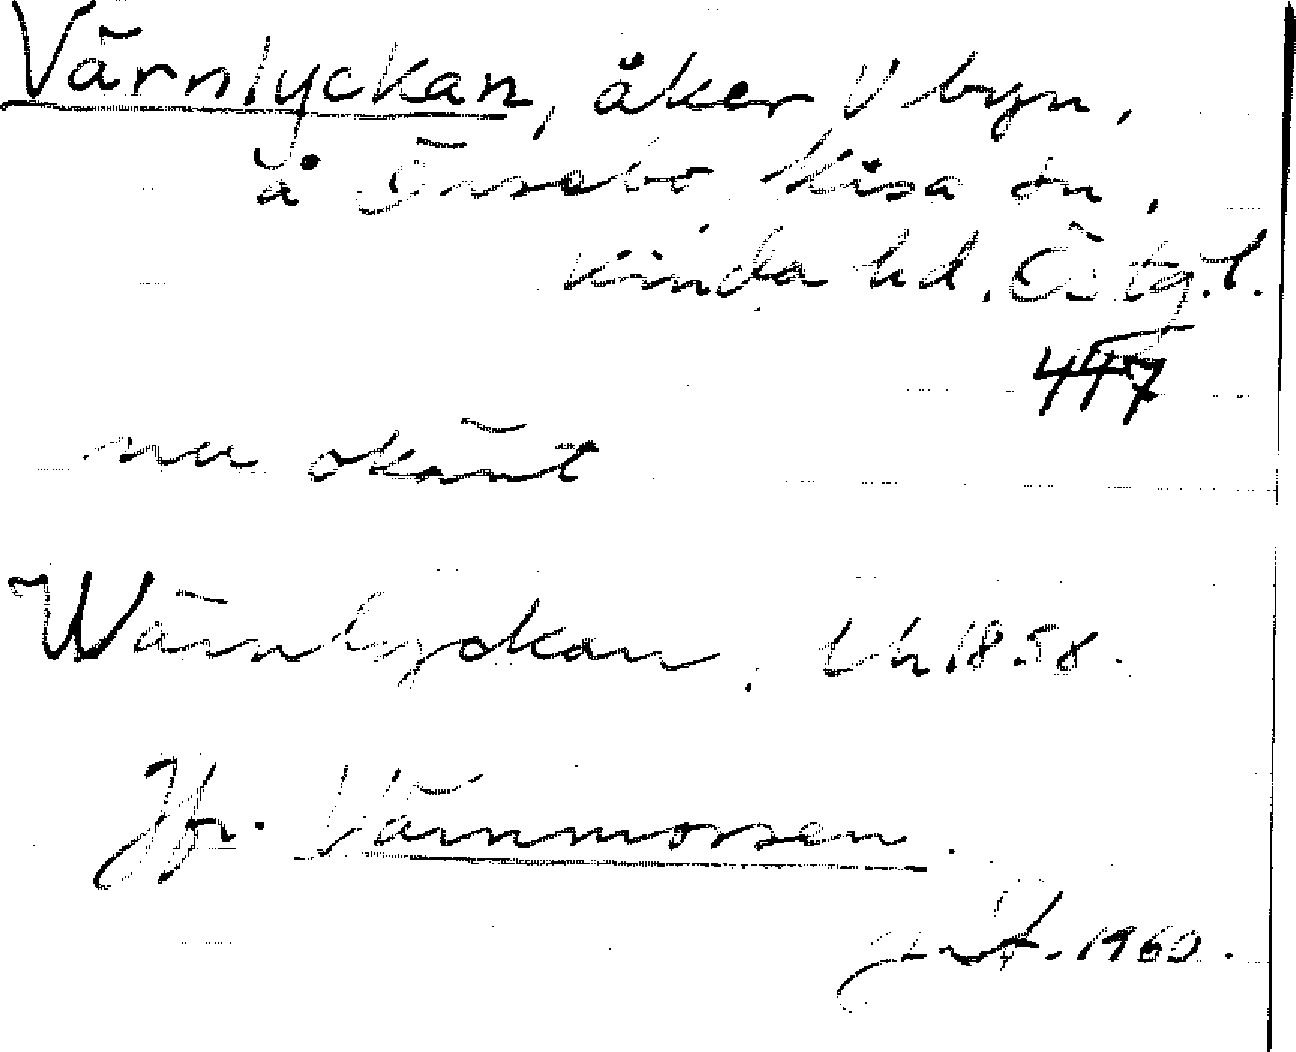 Värnlyckan, åker V byn,
å Önsebo, Kisa sn,
Kinda hd. Östg.l.
447
nu okänt
Wärnlyckan, Lh 1858.
Jfr. Värnmossen.
1960.